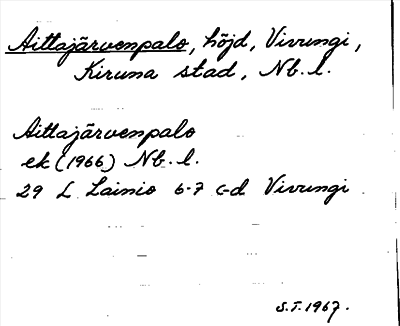 Aittajärvenpalo, höjd, Vivungi,
Kiruna stad, Nb. l.
Aittajärvenpalo
ek (1966) Nb. l.
29 L Lainio 6-7 c-d Vivungi
S.T. 1967.